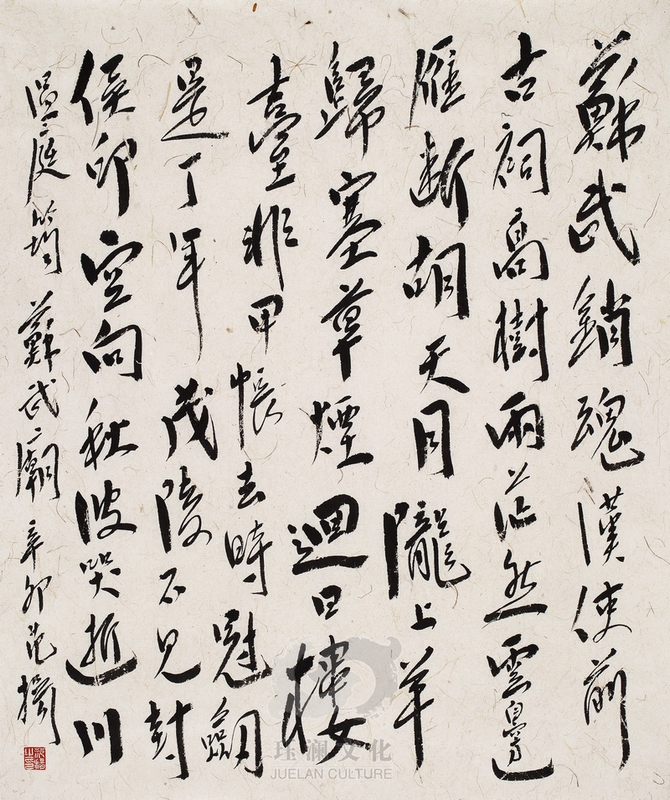 蘇武銷魂漢使前
古祠高樹兩茫然雲邊
雁断胡天月隴上羊
歸塞草煙迴日樓
臺非甲帳去時冠劍
是丁年茂陵不見封
侯印空向秋波哭逝川
温庭筠蘇武廟 辛卯范揚
珏澜文化
JUELAN CULTURE